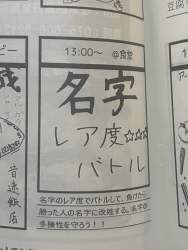 13:00〜 @食堂
名字
レア度☆☆☆
バトル
名字のレア度でバトルして、負けたら
勝った人の名字に改姓する。名字の
多様性を守ろう!!
音速飯店